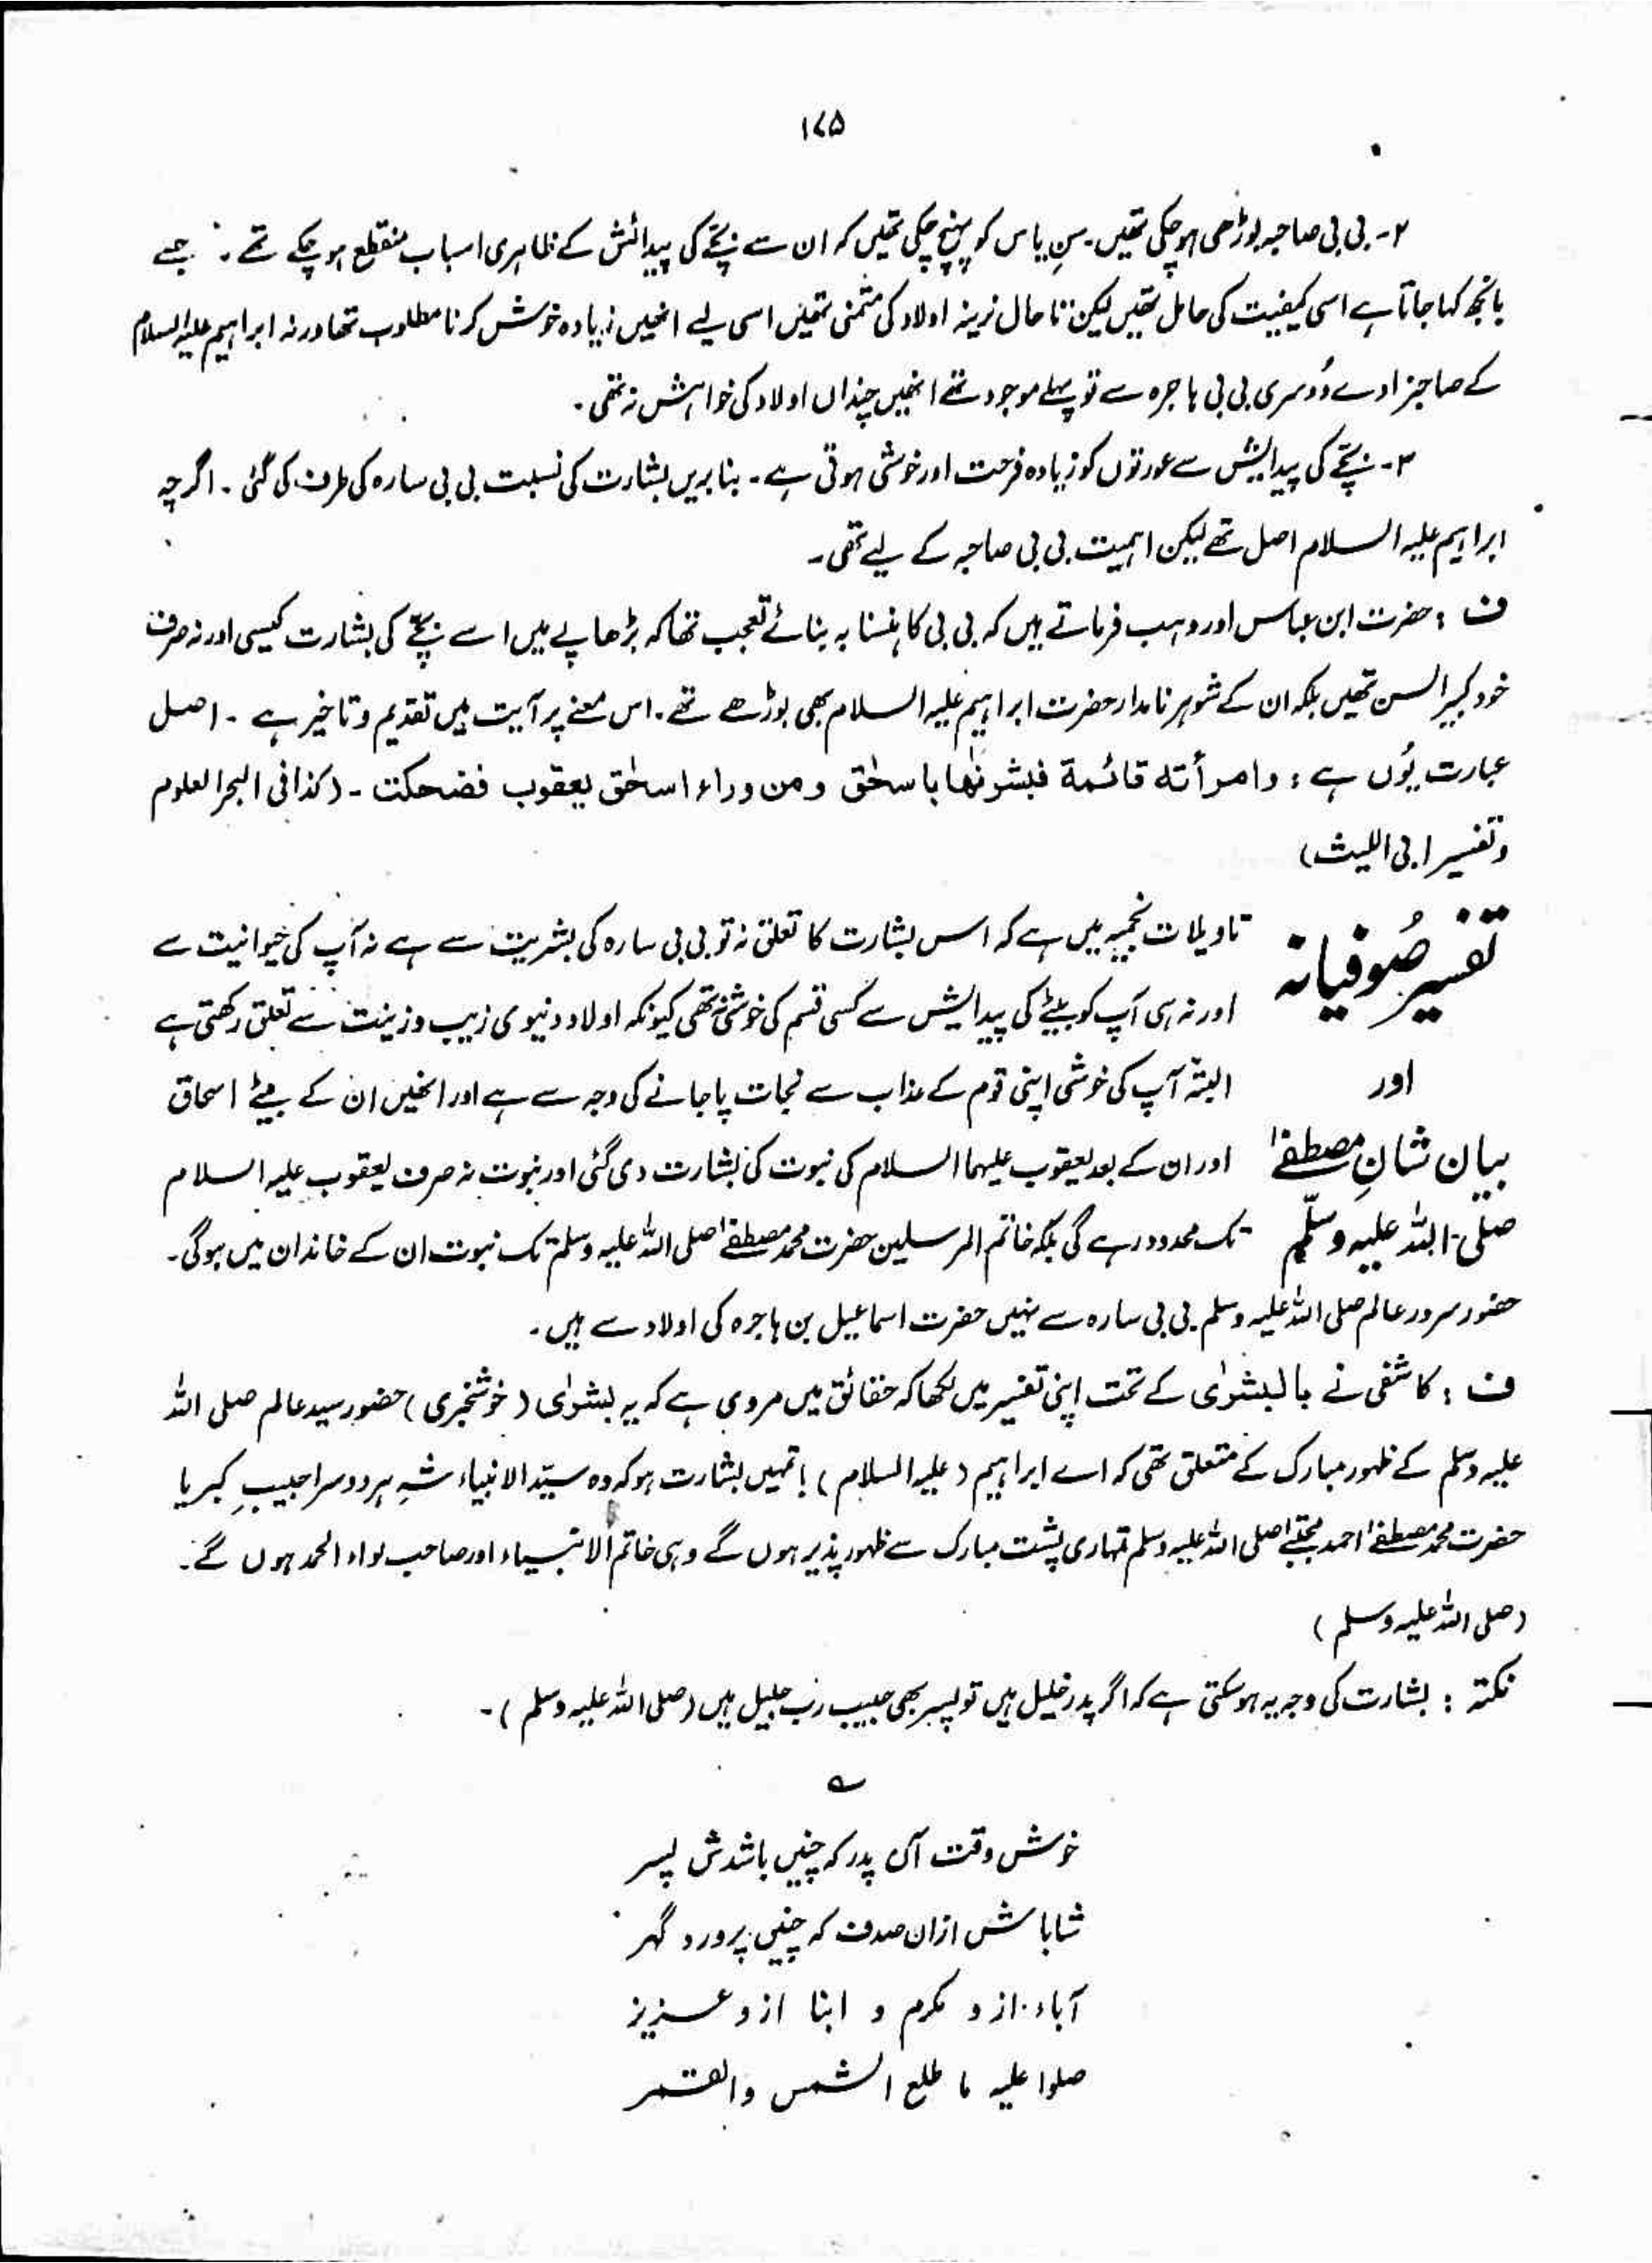 ۱۷۵
۲- بی بی صاحبہ بوڑھی ہو چکی تھیں۔ سنِ یاس کو پہنچ چکی تھیں کہ ان سے بچّے کی پیدائش کے ظاہری اسباب منقطع ہو چکے تھے۔ جسے
بانجھ کہا جاتا ہے اسی کیفیت کی حامل تھیں لیکن تاحال نرینہ اولاد کی متمنی تھیں اسی لیے انھیں زیادہ خوش کرنا مطلوب تھا ورنہ ابراہیم علیہ السلام
کے صاجزادے دُوسری بی بی ہاجرہ سے تو پہلے موجود تھے انھیں چنداں اولاد کی خواہش نہ تھی۔
۳- بچّے کی پیدایش سے عورتوں کو زیادہ فرحت اور خوشی ہوتی ہے۔ بنابریں بشارت کی نسبت بی بی سارہ کی طرف کی گئی۔ اگرچہ
ابراہیم علیہ السلام اصل تھے لیکن اہمیت بی بی صاحبہ کے لیے تھی۔
ف : حضرت ابن عباس اور وہب فرماتے ہیں کہ بی بی کا ہنسنا بہ بنائے تعجب تھا کہ بڑھاپے میں اسے بچّے کی بشارت کیسی اور نہ صرف
خود کبیر السن تھیں بلکہ ان کے شوہر نامدار حضرت ابراہیم علیہ السلام بھی بوڑھے تھے۔ اس معنے پر آیت میں تقدیم و تاخیر ہے۔ اصل
عبارت یُوں ہے : وامرأته قائمة فبشرنٰها باسحٰق ومن وراء اسحٰق يعقوب فضحكت۔ (کذا فی البحر العلوم
وتفسیر ابی اللیث)
تفسیر صُوفیانہ تاویلات نجمیہ میں ہے کہ اس بشارت کا تعلق نہ تو بی بی سارہ کی بشریت سے ہے نہ آپ کی حیوانیت سے
اور نہ ہی آپ کو بیٹے کی پیدایش سے کسی قسم کی خوشی تھی کیونکہ اولاد دنیوی زیب وزینت سے تعلق رکھتی ہے
اور البتہ آپ کی خوشی اپنی قوم کے عذاب سے نجات پا جانے کی وجہ سے ہے اور انھیں ان کے بیٹے اسحاق
بیان شانِ مصطفےٰ اور ان کے بعد یعقوب علیہما السلام کی نبوت کی بشارت دی گئی اور نبوت نہ صرف یعقوب علیہ السلام
صلّی اللہ علیہ وسلّم تک محدود رہے گی بلکہ خاتم المرسلین حضرت محمد مصطفےٰ صلی اللہ علیہ وسلم تک نبوت ان کے خاندان میں ہوگی۔
حضور سرور عالم صلی اللہ علیہ وسلم بی بی سارہ سے نہیں حضرت اسماعیل بن ہاجرہ کی اولاد سے ہیں۔
ف : کاشفی نے بالبشرٰی کے تحت اپنی تفسیر میں لکھا کہ حقائق میں مروی ہے کہ یہ بشرٰی (خوشخبری) حضور سید عالم صلی اللہ
علیہ وسلم کے ظہور مبارک کے متعلق تھی کہ اے ابراہیم (علیہ السلام)! تمہیں بشارت ہو کہ وہ سیّد الانبیاء شہِ ہر دوسرا حبیبِ کبریا
حضرت محمد مصطفےٰ احمد مجتبےٰ صلی اللہ علیہ وسلم تمہاری پشت مبارک سے ظہور پذیر ہوں گے وہی خاتم الانبیاء اور صاحب لواء الحمد ہوں گے۔
(صلی اللہ علیہ وسلم)
نکتہ : بشارت کی وجہ یہ ہو سکتی ہے کہ اگر پدر خلیل ہیں تو پسر بھی حبیب رب جلیل ہیں (صلی اللہ علیہ وسلم)۔
؎
خوش وقت آں پدر کہ چنیں باشدش پسر
شاباش ازاں صدف کہ چنیں پرورد گہر
آباء از و مکرم و ابنا از و عزیز
صلوا علیہ ما طلع الشمس والقمر